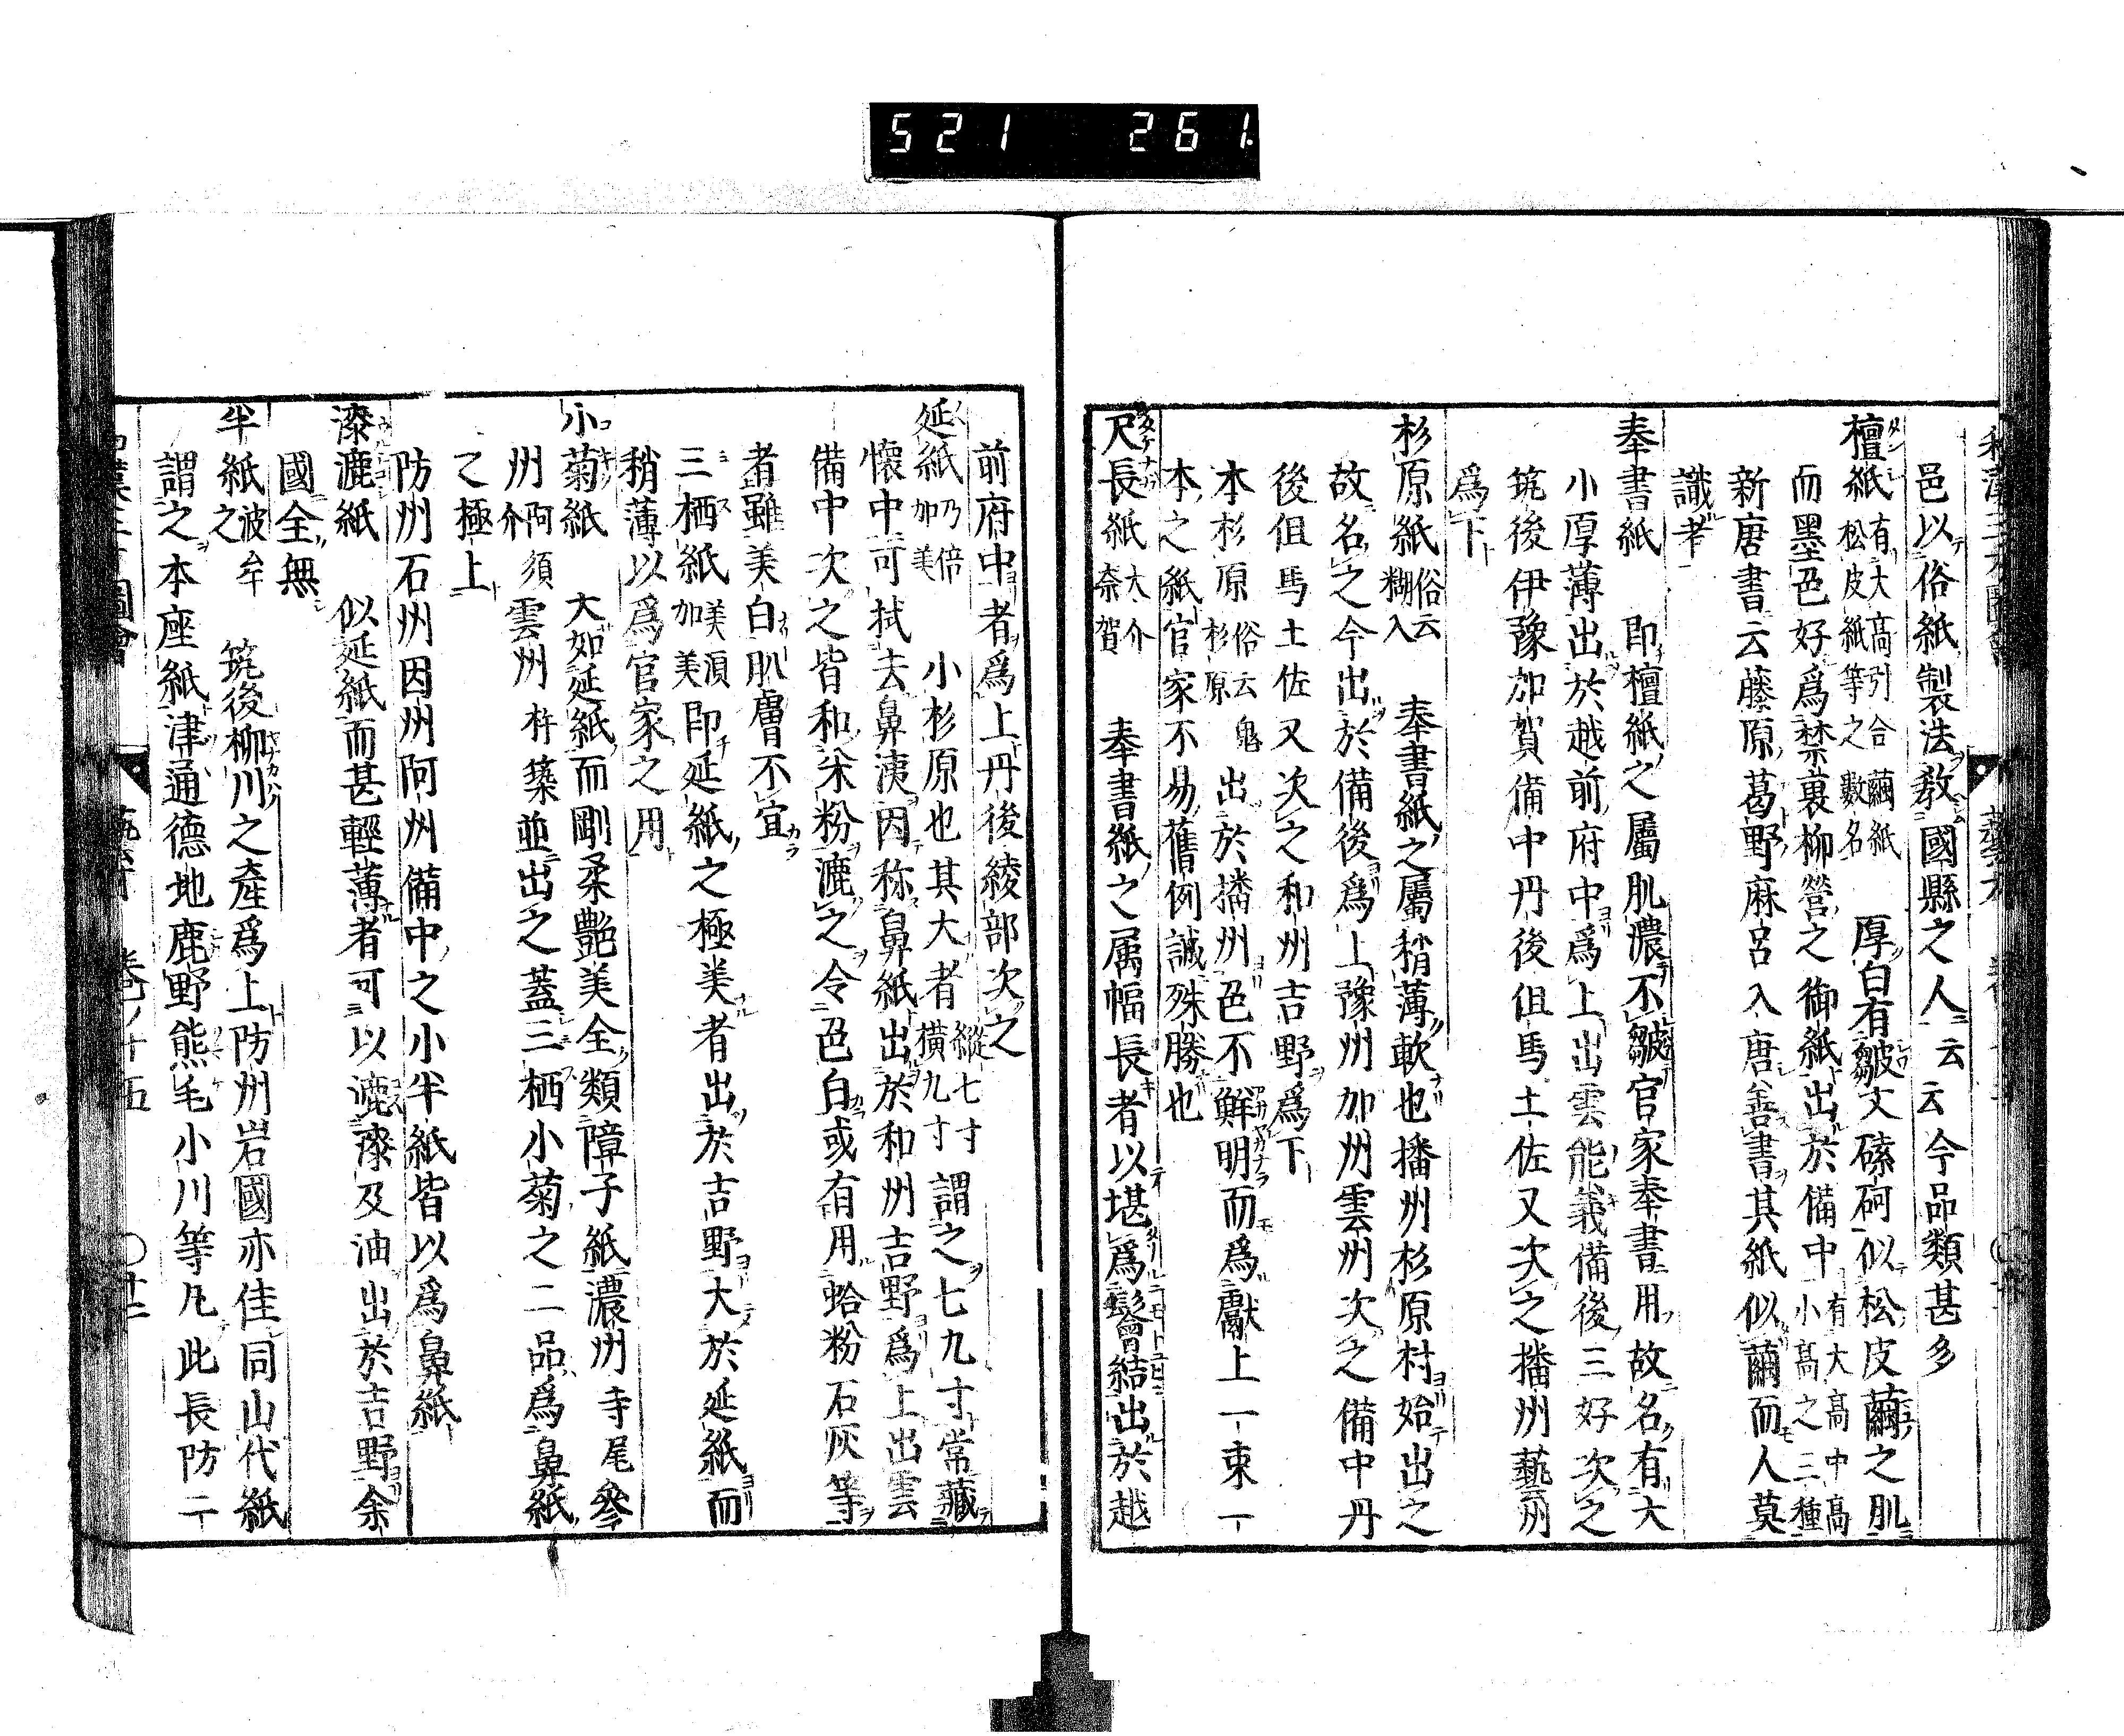 521 261
邑以俗紙製法教國縣之人云云今品類甚多
檀紙 有大高引合繭紙 松皮紙等之數名 厚白有皺文磥砢似松皮繭之肌
而墨色好爲禁裏柳營之御紙出於備中 有大高中高 小高之三種
新唐書云藤原葛野麻呂入唐善書其紙似繭而人莫
識者
奉書紙 即檀紙之屬肌濃不皺官家奉書用故名有大
小厚薄出於越前府中爲上出雲能義備後三好次之
筑後伊豫加賀備中丹後但馬土佐又次之播州藝州
爲下
杉原紙 俗云 糊入 奉書紙之屬稍薄軟也播州杉原村始出之
故名之今出於備後爲上豫州加州雲州次之備中丹
後但馬土佐又次之和州吉野爲下
本杉原 俗云鬼 杉原 出於播州色不鮮明而爲獻上一束一
本之紙官家不易舊例誠殊勝也
尺長紙 大介 奈賀 奉書紙之属幅長者以堪爲鬠結出於越
前府中者爲上丹後綾部次之
延紙 乃倍 加美 小杉原也其大者 縱七寸 橫九寸 謂之七九寸常藏
懷中可拭去鼻洟因称鼻紙出於和州吉野爲上出雲
備中次之皆和米粉漉之令色白或有用蛤粉石灰等
者雖美白肌膚不宜
三栖紙 美須 加美 即延紙之極美者出於吉野大於延紙而
稍薄以爲官家之用
小菊紙 大如延紙而剛柔艶美全類障子紙濃州寺尾參
州 阿須 介 雲州杵築並出之蓋三栖小菊之二品爲鼻紙
之極上
防州石州因州阿州備中之小半紙皆以爲鼻紙
漆漉紙 似延紙而甚輕薄者可以漉漆及油出於吉野余
國全無
半紙 波牟 之 筑後柳川之產爲上防州岩國亦佳同山代紙
謂之本座紙津通德地鹿野熊毛小川等凡此長防二